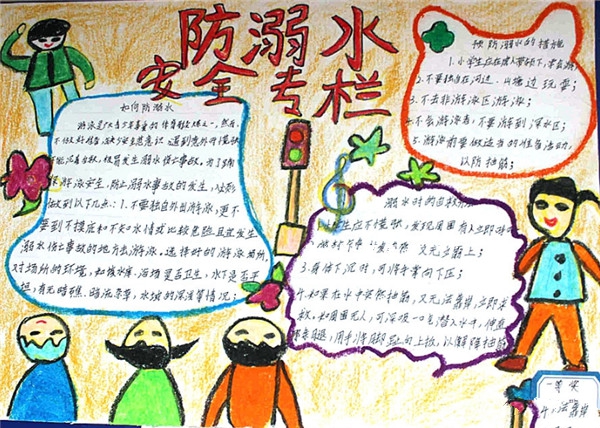 防溺水
安全专栏
如何防溺水
游泳是广大青少年喜爱的体育锻炼之一，然而，
不做好准备、缺少安全意识，遇到意外时慌张
不能沉着自救，极易发生溺水伤亡事故。为了确
保游泳安全，防止溺水事故的发生，必须
做到以下几点：1.不要独自外出游泳，更不
要到不摸底和不知水情或比较危险且宜发生
溺水伤亡事故的地方去游泳。选择好的游泳场所，
对场所的环境，如该水库、浴场是否卫生，水下是否平
坦，有无暗礁、暗流、杂草，水域的深浅等情况；
预防溺水的措施
1.小学生应在成人带领下，学会游
2.不要独自在河边、山塘边玩耍；
3.不去非游泳区游泳；
4.不会游泳者，不要游到深水区；
5.游泳前要做适当的准备活动，
以防抽筋；
溺水时的自救
3.身体下沉时，可将手掌向下压；
4.如果在水中突然抽筋，又无法靠岸，立即求
救，如周围无人，可深吸一口气潜入水中，伸直
用手将脚趾向上扳，以解除抽筋
一等奖